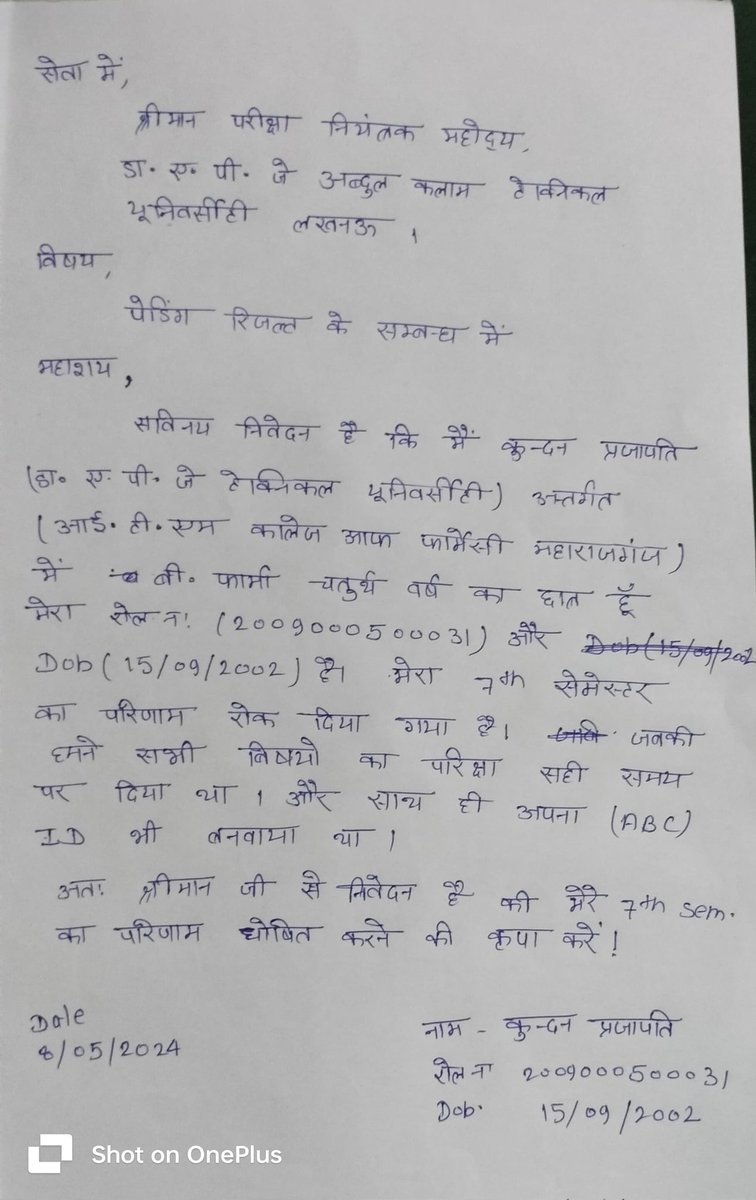 सेवा में,
श्रीमान परीक्षा नियंत्रक महोदय,
डा॰ ए॰ पी॰ जे अब्दुल कलाम टेक्निकल
यूनिवर्सीटी लखनऊ ।
विषय,
पेडिंग रिजल्ट के सम्बन्ध में
महाशय,
सविनय निवेदन है कि मैं कुन्दन प्रजापति
(डा॰ ए॰ पी॰ जे टेक्निकल यूनिवर्सीटी) अन्तर्गत
(आई॰ टी॰ एम कालेज आफ फार्मेसी महाराजगंज)
में बी॰ फार्मा चतुर्थ वर्ष का छात्र हूँ
मेरा रोल न॰ (2009000500031) और Dob (15/09/2002
Dob (15/09/2002) है। मेरा 7th सेमेस्टर
का परिणाम रोक दिया गया है। जबकी
हमने सभी विषयो का परिक्षा सही समय
पर दिया था । और साथ ही अपना (ABC)
ID भी बनवाया था ।
अतः श्रीमान जी से निवेदन है की मेरे 7th sem.
का परिणाम घोषित करने की कृपा करें!
Date
8/05/2024
नाम - कुन्दन प्रजापति
रोल न 2009000500031
Dob. 15/09/2002
Shot on OnePlus